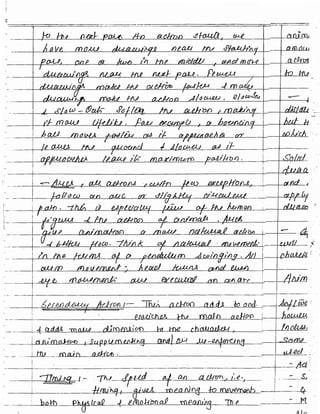 to the next pose. An action starts, we
have more drawings near the starting
pose, one or two in the middle, and more
drawings near the next pose. Fewer
drawings make the action faster & more
drawings make the action slower. Slow-ins
& slow-outs soften the action, making
it more lifelike. For example, a bouncing
ball moves faster as it approaches or
leaves the ground & slower as it
approaches leave its maximum position.
— Arcs, all actions, with few exceptions,
follow an arc or slightly circular
path. This is especially true of the human
figure & the action of animals. Arcs
give animation a more natural action
& better flow. Think of natural movements
in the terms of a pendulum swinging. All
arm movement, head turns and even
eye movements are executed on an arc.
Secondary Action:- This action adds to and
enriches the main action
& adds more dimension to the character
animation, supplementing and/or re-enforcing
the main action.
- Timing :- The speed of an action, i.e.,
timing, gives meaning to movement,
both physical & emotional meaning. The
anim
to the
and
apply
- G
will
Anim
Some
used
- S
- M